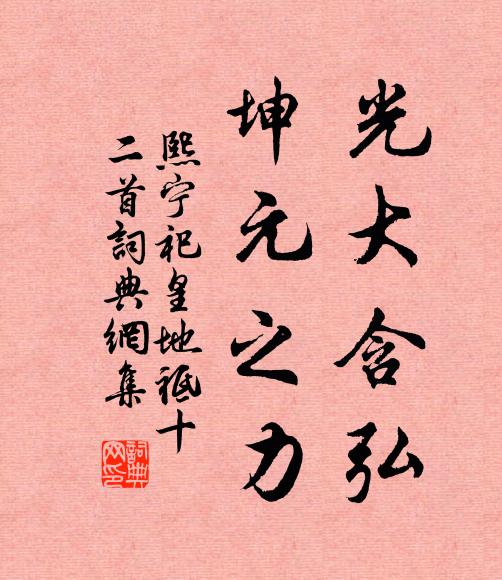 光大含弘
坤元之力
熙宁祀皇地祗十
二首詞典網集
詞典网印